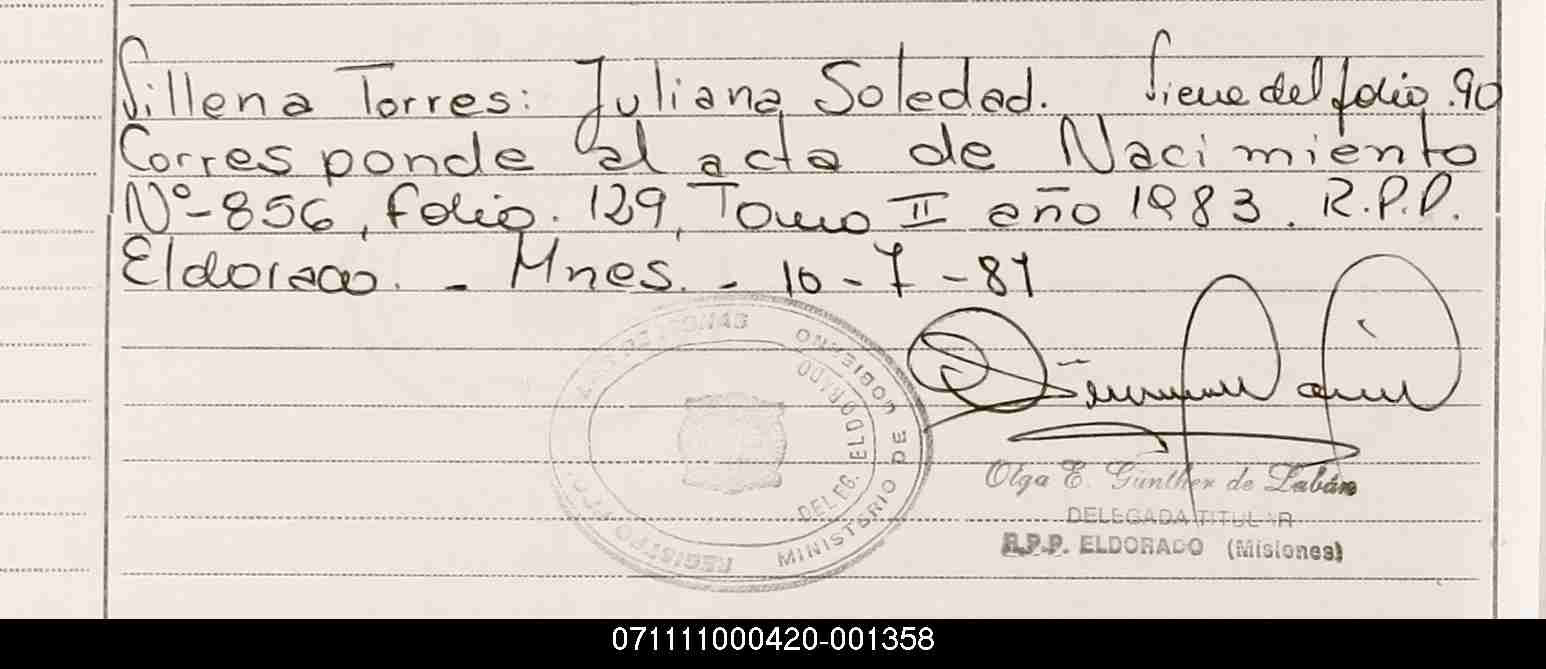 Villena Torres: Juliana Soledad. Viene del folio .90
Corresponde al acta de Nacimiento
Nº-856, folio. 129, Tomo II año 1983. R.P.P.
Eldorado. - Mnes. - 10-7-87
REGISTRO PCIAL. DE LAS PERSONAS
MINISTERIO DE GOBIERNO
DELEG. ELDORADO
Olga E. Günther de Labán
DELEGADA TITULAR
R.P.P. ELDORADO (Misiones)
071111000420-001358